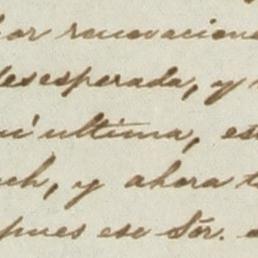 por renovacione
desesperada, y
mi ultima, es
ch, y ahora t
pues ese Sór.